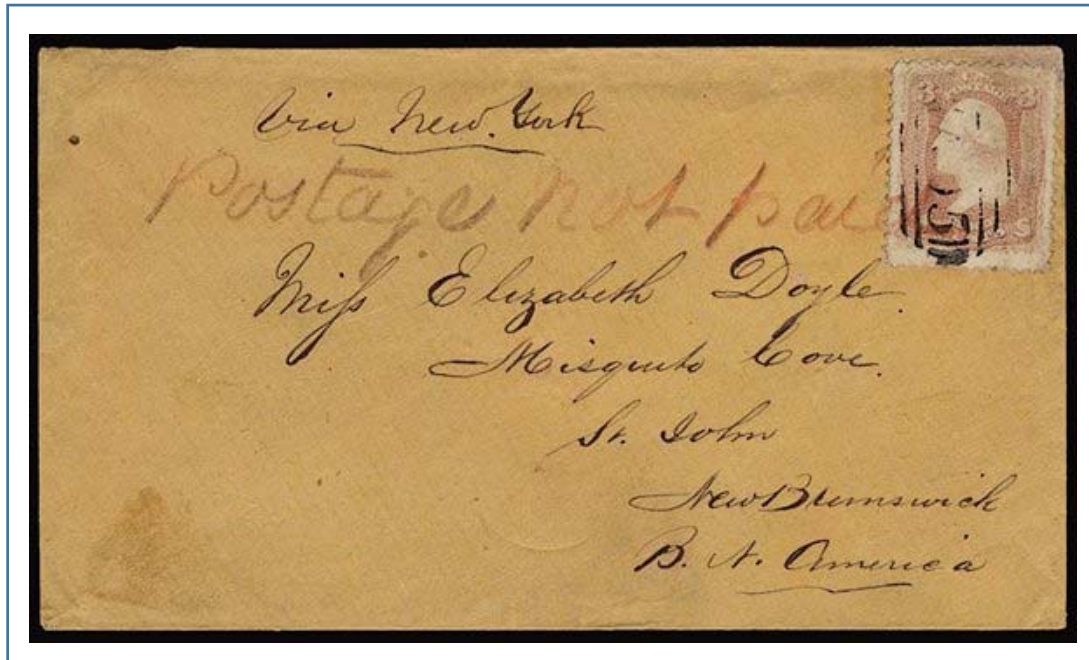 Via New York
Postage not paid
3 U.S. POSTAGE 3
35
Miss Elizabeth Doyle
Misquito Cove.
St. John
New Brunswick
B. N. America